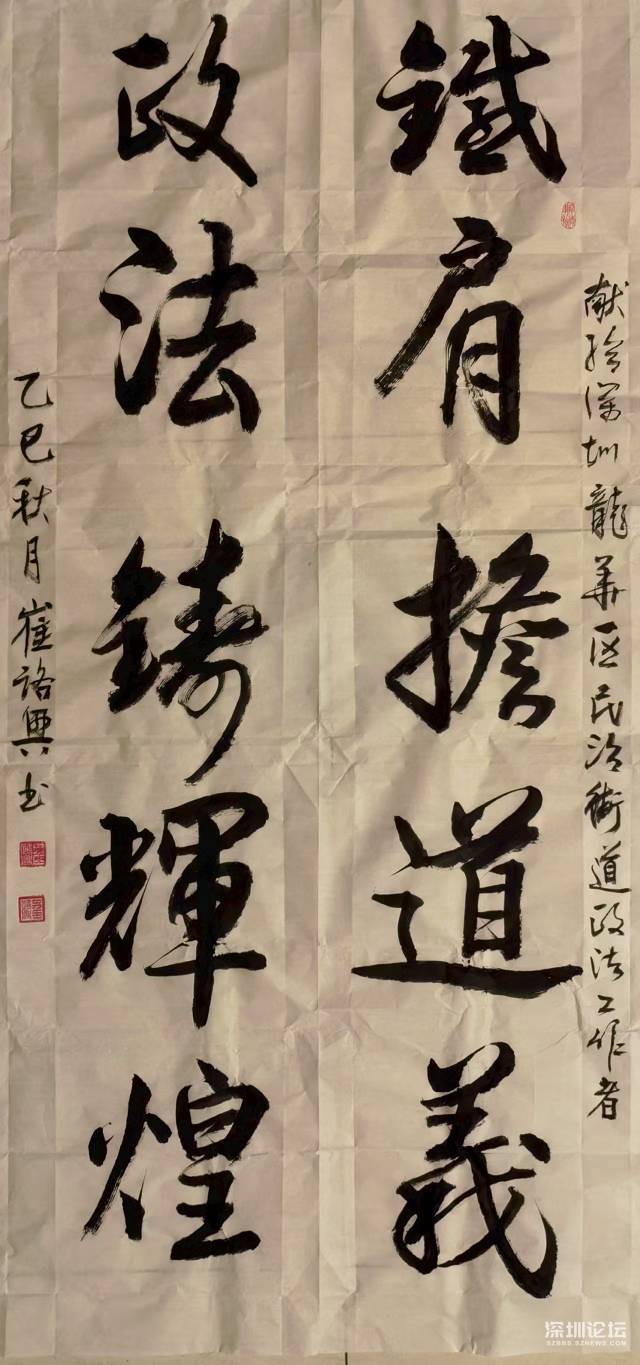 献给深圳龍华区民治街道政法工作者
鐵肩擔道義
政法鑄輝煌
乙巳秋月崔詻興书
深圳论坛
SZBBS.SZNEWS.COM